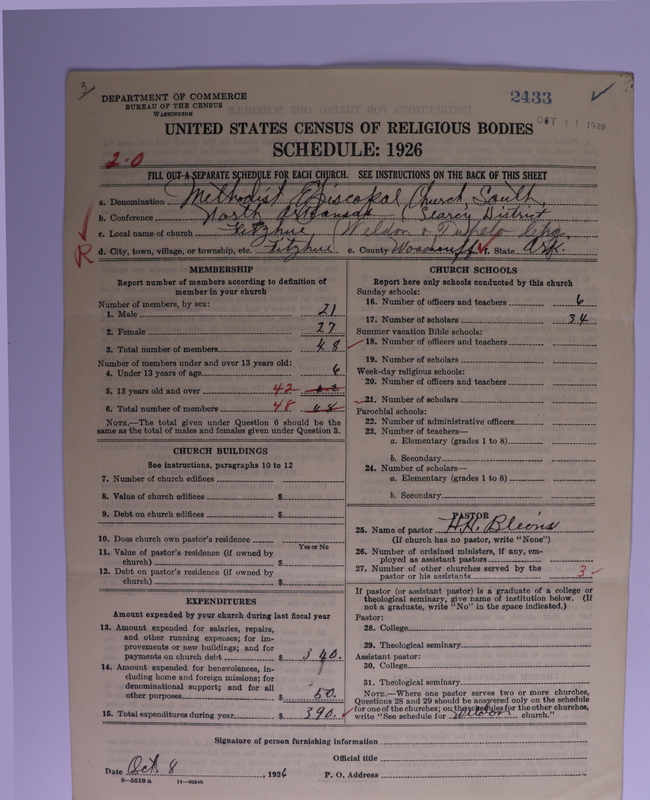 3
DEPARTMENT OF COMMERCE
BUREAU OF THE CENSUS
WASHINGTON
2433
OCT 11 1926
UNITED STATES CENSUS OF RELIGIOUS BODIES
SCHEDULE: 1926
2-0
FILL OUT A SEPARATE SCHEDULE FOR EACH CHURCH. SEE INSTRUCTIONS ON THE BACK OF THIS SHEET
a. Denomination Methodist Episcopal Church, South,
b. Conference North Arkansas (Searcy District
c. Local name of church Fitzhue (Weldon & Tupelo
R
d. City, town, village, or township, etc. Fitzhue. e. County Woodruff f. State Ark.
MEMBERSHIP
Report number of members according to definition of member in your church
Number of members, by sex:
1. Male 21
2. Female 27
3. Total number of members 48
Number of members under and over 13 years old:
4. Under 13 years of age 6
5. 13 years old and over 42
6. Total number of members 48
NOTE.—The total given under Question 6 should be the
same as the total of males and females given under Question 3.
CHURCH BUILDINGS
See instructions, paragraphs 10 to 12
7. Number of church edifices
8. Value of church edifices $
9. Debt on church edifices $
10. Does church own pastor's residence
Yes or No
11. Value of pastor's residence (if owned by
church) $
12. Debt on pastor's residence (if owned by
church) $
EXPENDITURES
Amount expended by your church during last fiscal year
13. Amount expended for salaries, repairs,
and other running expenses; for im-
provements or new buildings; and for
payments on church debt $ 340.
14. Amount expended for benevolences, in-
cluding home and foreign missions; for
denominational support; and for all
other purposes $ 50.
15. Total expenditures during year $ 390.
CHURCH SCHOOLS
Report here only schools conducted by this church
Sunday schools:
16. Number of officers and teachers 6
17. Number of scholars 34
Summer vacation Bible schools:
18. Number of officers and teachers
19. Number of scholars
Week-day religious schools:
20. Number of officers and teachers
21. Number of scholars
Parochial schools:
22. Number of administrative officers
23. Number of teachers—
a. Elementary (grades 1 to 8)
b. Secondary
24. Number of scholars—
a. Elementary (grades 1 to 8)
b. Secondary
PASTOR
25. Name of pastor H.H. Blevins
(If church has no pastor, write "None")
26. Number of ordained ministers, if any, em-
ployed as assistant pastors
27. Number of other churches served by the
pastor or his assistants 3
If pastor (or assistant pastor) is a graduate of a college or
theological seminary, give name of institution below. (If
not a graduate, write "No" in the space indicated.)
Pastor:
28. College
29. Theological seminary
Assistant pastor:
30. College
31. Theological seminary
NOTE.—Where one pastor serves two or more churches,
Questions 28 and 29 should be answered only on the schedule
for one of the churches; on the schedules for the other churches,
write "See schedule for Weldon church."
Signature of person furnishing information
Official title
Date Oct. 8, 1926 P. O. Address
8—5518 a